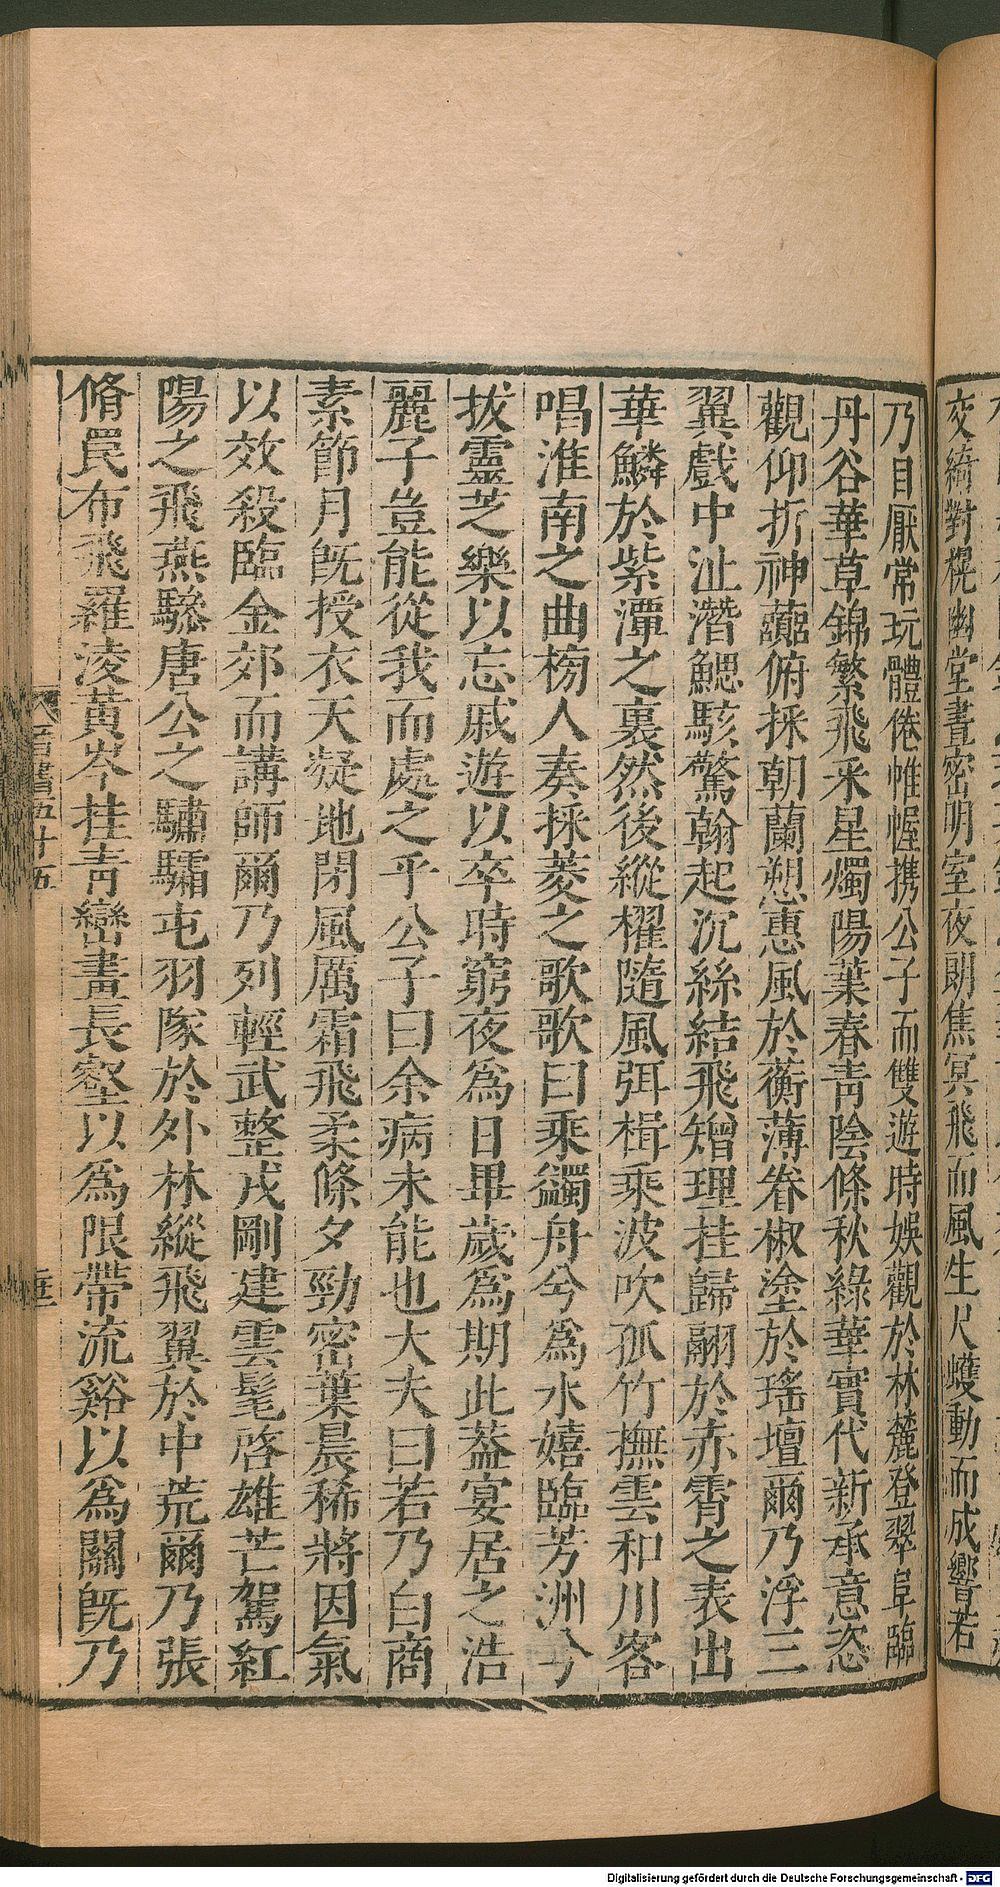 交綺對榥幽堂晝密明室夜朗焦冥飛而風生尺蠖動而成響若
乃目厭常玩體倦帷幄携公子而雙遊時娛觀於林麓登翠阜臨
丹谷華草錦繁飛采星燭陽葉春青陰條秋綠華實代新承意恣
觀仰折神虈俯採朝蘭愬惠風於蘅薄眷椒塗於瑤壇爾乃浮三
翼戲中沚潛鰓駭驚翰起沉絲結飛矰理挂歸翮於赤霄之表出
華鱗於紫潭之裏然後縱櫂隨風弭楫乘波吹孤竹撫雲和川客
唱淮南之曲榜人奏採菱之歌歌曰乘鷁舟兮為水嬉臨芳洲兮
拔靈芝樂以忘戚遊以卒時窮夜為日畢歲為期此葢宴居之浩
麗子豈能從我而處之乎公子曰余病未能也大夫曰若乃白商
素節月旣授衣天凝地閉風厲霜飛柔條夕勁密葉晨稀將因氣
以效殺臨金郊而講師爾乃列輕武整戎剛建雲髦啓雄芒駕紅
陽之飛燕驂唐公之驌驦屯羽隊於外林縱飛翼於中荒爾乃張
脩罠布飛羅淩黃岑挂青巒畫長壑以為限帶流谿以為關旣乃
晉書五十五
Digitalisierung gefördert durch die Deutsche Forschungsgemeinschaft - DFG